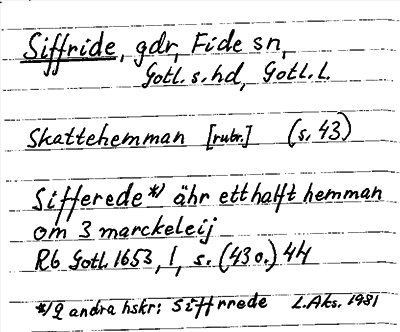 Siffride, gdr, Fide sn,
Gotl. s. hd, Gotl. l.
Skattehemman [rubr.] (s. 43)
Sifferede*) ähr ett halft hemman
om 3 marckeleij
Rb Gotl. 1653, 1, s. (43 o.) 44
*) 2 andra hskr: Siffrrede L. Aks. 1981